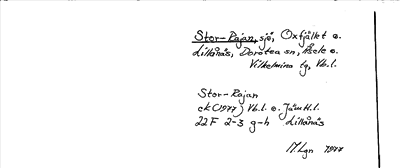 Stor-Rajan, sjö, Oxfjället o.
Lillånäs, Dorotea sn, Åsele o.
Vilhelmina tg, Vb.l.
Stor-Rajan
ek (1977) Vb.l. o. Jämtl.l.
22 F 2-3 g-h Lillånäs
M.Lgn 1977